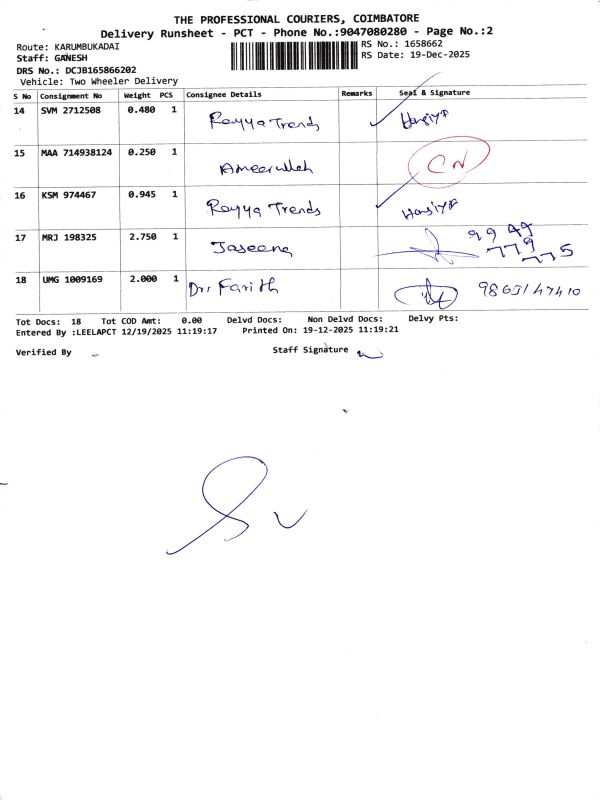 THE PROFESSIONAL COURIERS, COIMBATORE
Delivery Runsheet - PCT - Phone No.:9047080280 - Page No.:2
Route: KARUMBUKADAI
RS No.: 1658662
Staff: GANESH
RS Date: 19-Dec-2025
DRS No.: DCJB165866202
Vehicle: Two Wheeler Delivery
S No Consignment No Weight PCS Consignee Details Remarks Seal & Signature
14 SVM 2712508 0.480 1 Rayya Trends
15 MAA 714938124 0.250 1 Ameerullah CN
16 KSM 974467 0.945 1 Rayya Trends
17 MRJ 198325 2.750 1 Jaseena 9949
779
775
18 UMG 1009169 2.000 1 Dr: Farith
Tot Docs: 18 Tot COD Amt: 0.00 Delvd Docs: Non Delvd Docs: Delvy Pts:
Entered By :LEELAPCT 12/19/2025 11:19:17 Printed On: 19-12-2025 11:19:21
Verified By Staff Signature